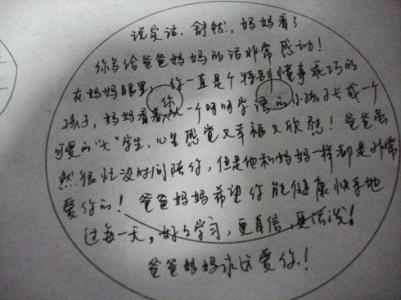 说实话，舒然，妈妈看了
你写给爸爸妈妈的话非常感动！
在妈妈眼里，你一直是个特别懂事乖巧的
孩子，妈妈看着从一个呀呀学语的小孩子长成一个
可爱的“大”学生，心里感觉又幸福又欣慰！爸爸虽
然很忙没时间陪你，但是他和妈妈一样都是非常
爱你的！爸爸妈妈希望你能健康快乐地
过每一天，好好学习，更自信，更活泼！
爸爸妈妈永远爱你！